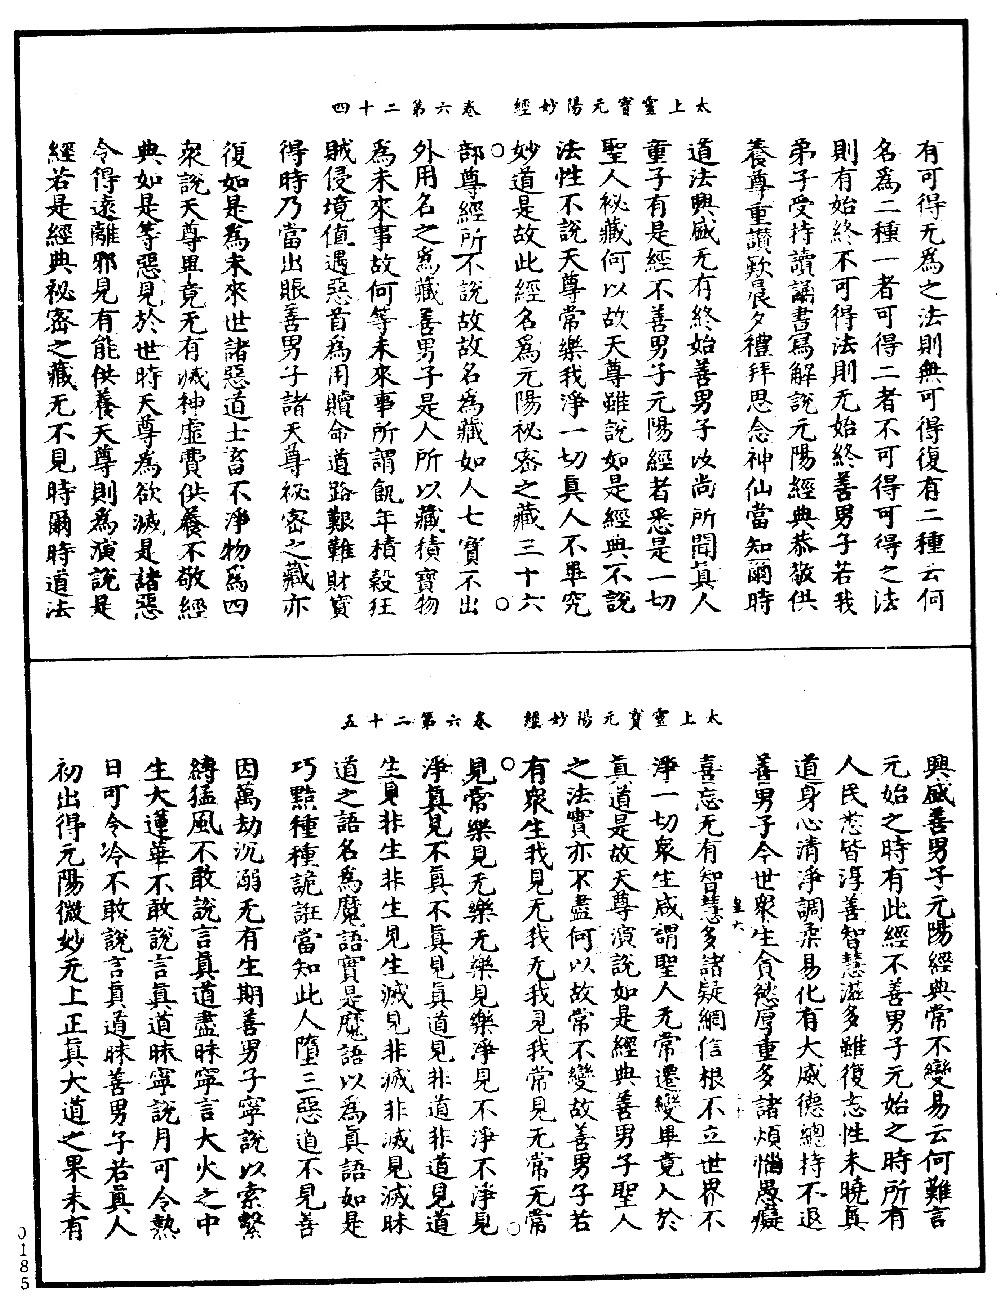 太上靈寶元陽妙經　卷六第二十四
有可得无為之法則無可得復有二種云何
名為二種一者可得二者不可得可得之法
則有始終不可得法則无始終善男子若我
弟子受持讀誦書寫解說元陽經典恭敬供
養尊重讚歎晨夕禮拜思念神仙當知爾時
道法興盛无有終始善男子改尚所聞真人
童子有是經不善男子元陽經者悉是一切
聖人秘藏何以故天尊雖說如是經典不說
法性不說天尊常樂我淨一切真人不畢究
妙道是故此經名為元陽祕密之藏三十六
部尊經所不說故故名為藏如人七寶不出
外用名之為藏善男子是人所以藏積寶物
為未來事故何等未來事所謂飢年積穀狂
賊侵境值遇惡首為用贖命道路艱難財寶
得時乃當出賬善男子諸天尊祕密之藏亦
復如是為未來世諸惡道士畜不淨物為四
衆說天尊畢竟无有滅神虛費供養不敬經
典如是等惡見於世時天尊為欲滅是諸惡
令得遠離邪見有能供養天尊則為演說是
經若是經典祕密之藏无不見時爾時道法
太上靈寶元陽妙經　卷六第二十五
興盛善男子元陽經典常不變易云何難言
元始之時有此經不善男子元始之時所有
人民悉皆淳善智慧滋多雖復忘性未曉真
道身心清淨調柔易化有大威德總持不退
善男子今世衆生貪慾厚重多諸煩惱愚癡
喜忘无有智慧多諸疑網信根不立世界不
淨一切衆生咸謂聖人无常遷變畢竟入於
真道是故天尊演說如是經典善男子聖人
之法實亦不盡何以故常不變故善男子若
有衆生我見无我无我見我常見无常无常
見常樂見无樂无樂見樂淨見不淨不淨見
淨真見不真不真見真道見非道非道見道
生見非生非生見生滅見非滅非滅見滅昧
道之語名為魔語實是魔語以為真語如是
巧黠種種詭誑當知此人墮三惡道不見善
因萬劫沉溺无有生期善男子寧說以索繫
縛猛風不敢說言真道盡昧寧言大火之中
生大蓮華不敢說言真道昧寧說月可令熱
日可令冷不敢說言真道昧善男子若真人
初出得元陽微妙无上正真大道之果未有
0185